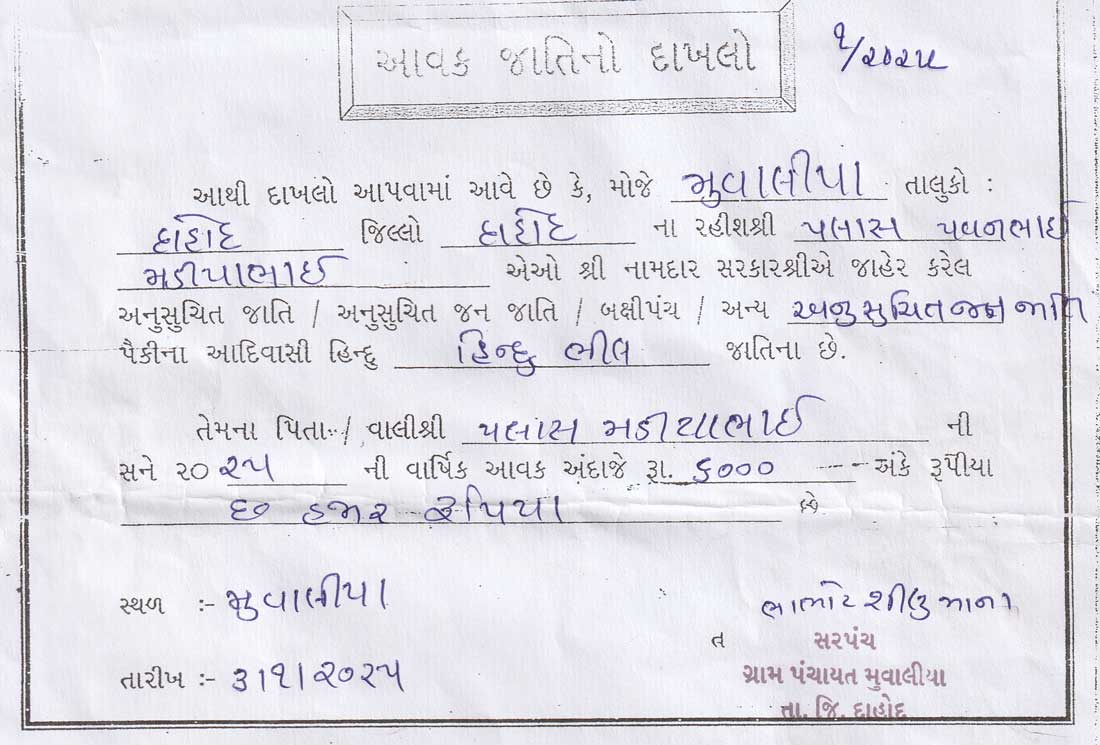 આવક જાતિનો દાખલો
૧/૨૦૨૫
આથી દાખલો આપવામાં આવે છે કે, મોજે મુવાલીયા તાલુકો :
દાહોદ જિલ્લો દાહોદ ના રહીશશ્રી પલાસ પવનભાઈ
મડીયાભાઈ એઓ શ્રી નામદાર સરકારશ્રીએ જાહેર કરેલ
અનુસુચિત જાતિ / અનુસુચિત જન જાતિ / બક્ષીપંચ / અન્ય અનુસુચિત જન જાતિ
પૈકીના આદિવાસી હિન્દુ હિન્દુ ભીલ જાતિના છે.
તેમના પિતા / વાલીશ્રી પલાસ મડીયાભાઈ ની
સને ૨૦૨૫ ની વાર્ષિક આવક અંદાજે રૂા. ૬૦૦૦ ---- અંકે રૂપીયા
છ હજાર રૂપિયા છે
સ્થળ :- મુવાલીયા
ભાભોર
ત સરપંચ
ગ્રામ પંચાયત મુવાલીયા
તારીખ :- ૩|૧|૨૦૨૫
તા. જિ. દાહોદ